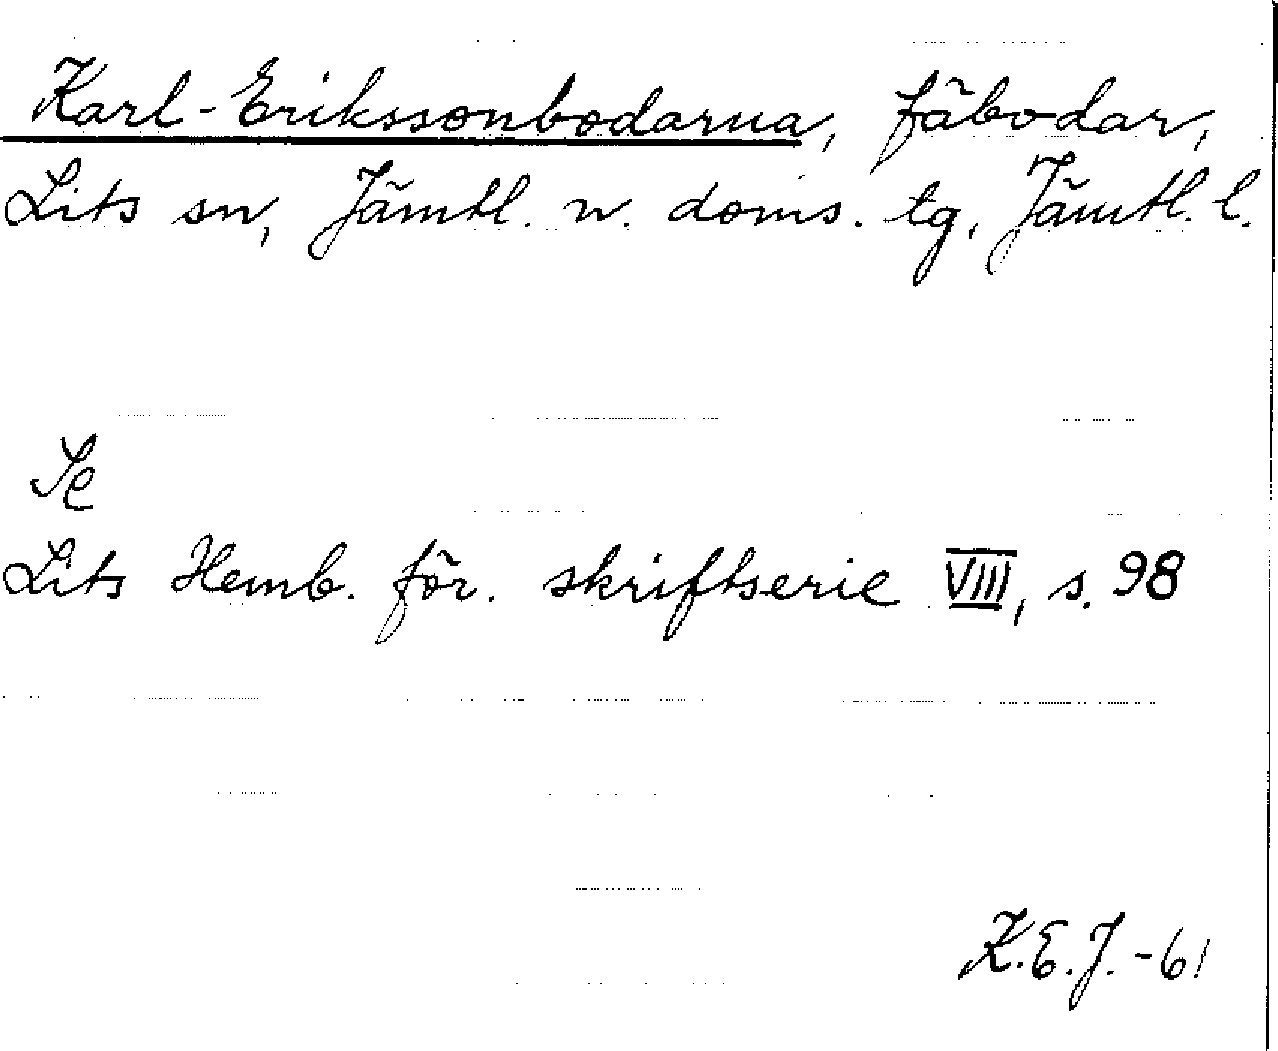 Karl-Erikssonbodarna, fäbodar,
Lits sn, Jämtl. n. doms. tg, Jämtl. l.
Se
Lits Hemb. för. skriftserie VIII, s. 98
K.E.J. -61